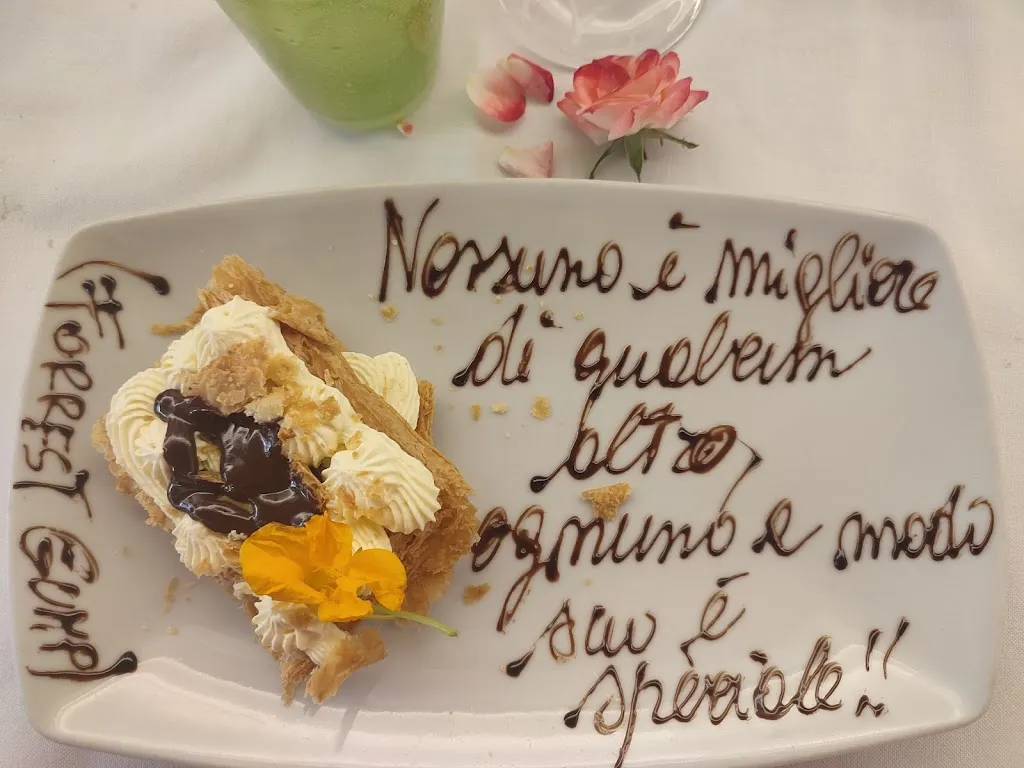 Nessuno è migliore
di qualcun
altro,
ognuno e modo
suo è
speciale!!
(FORREST GUMP)